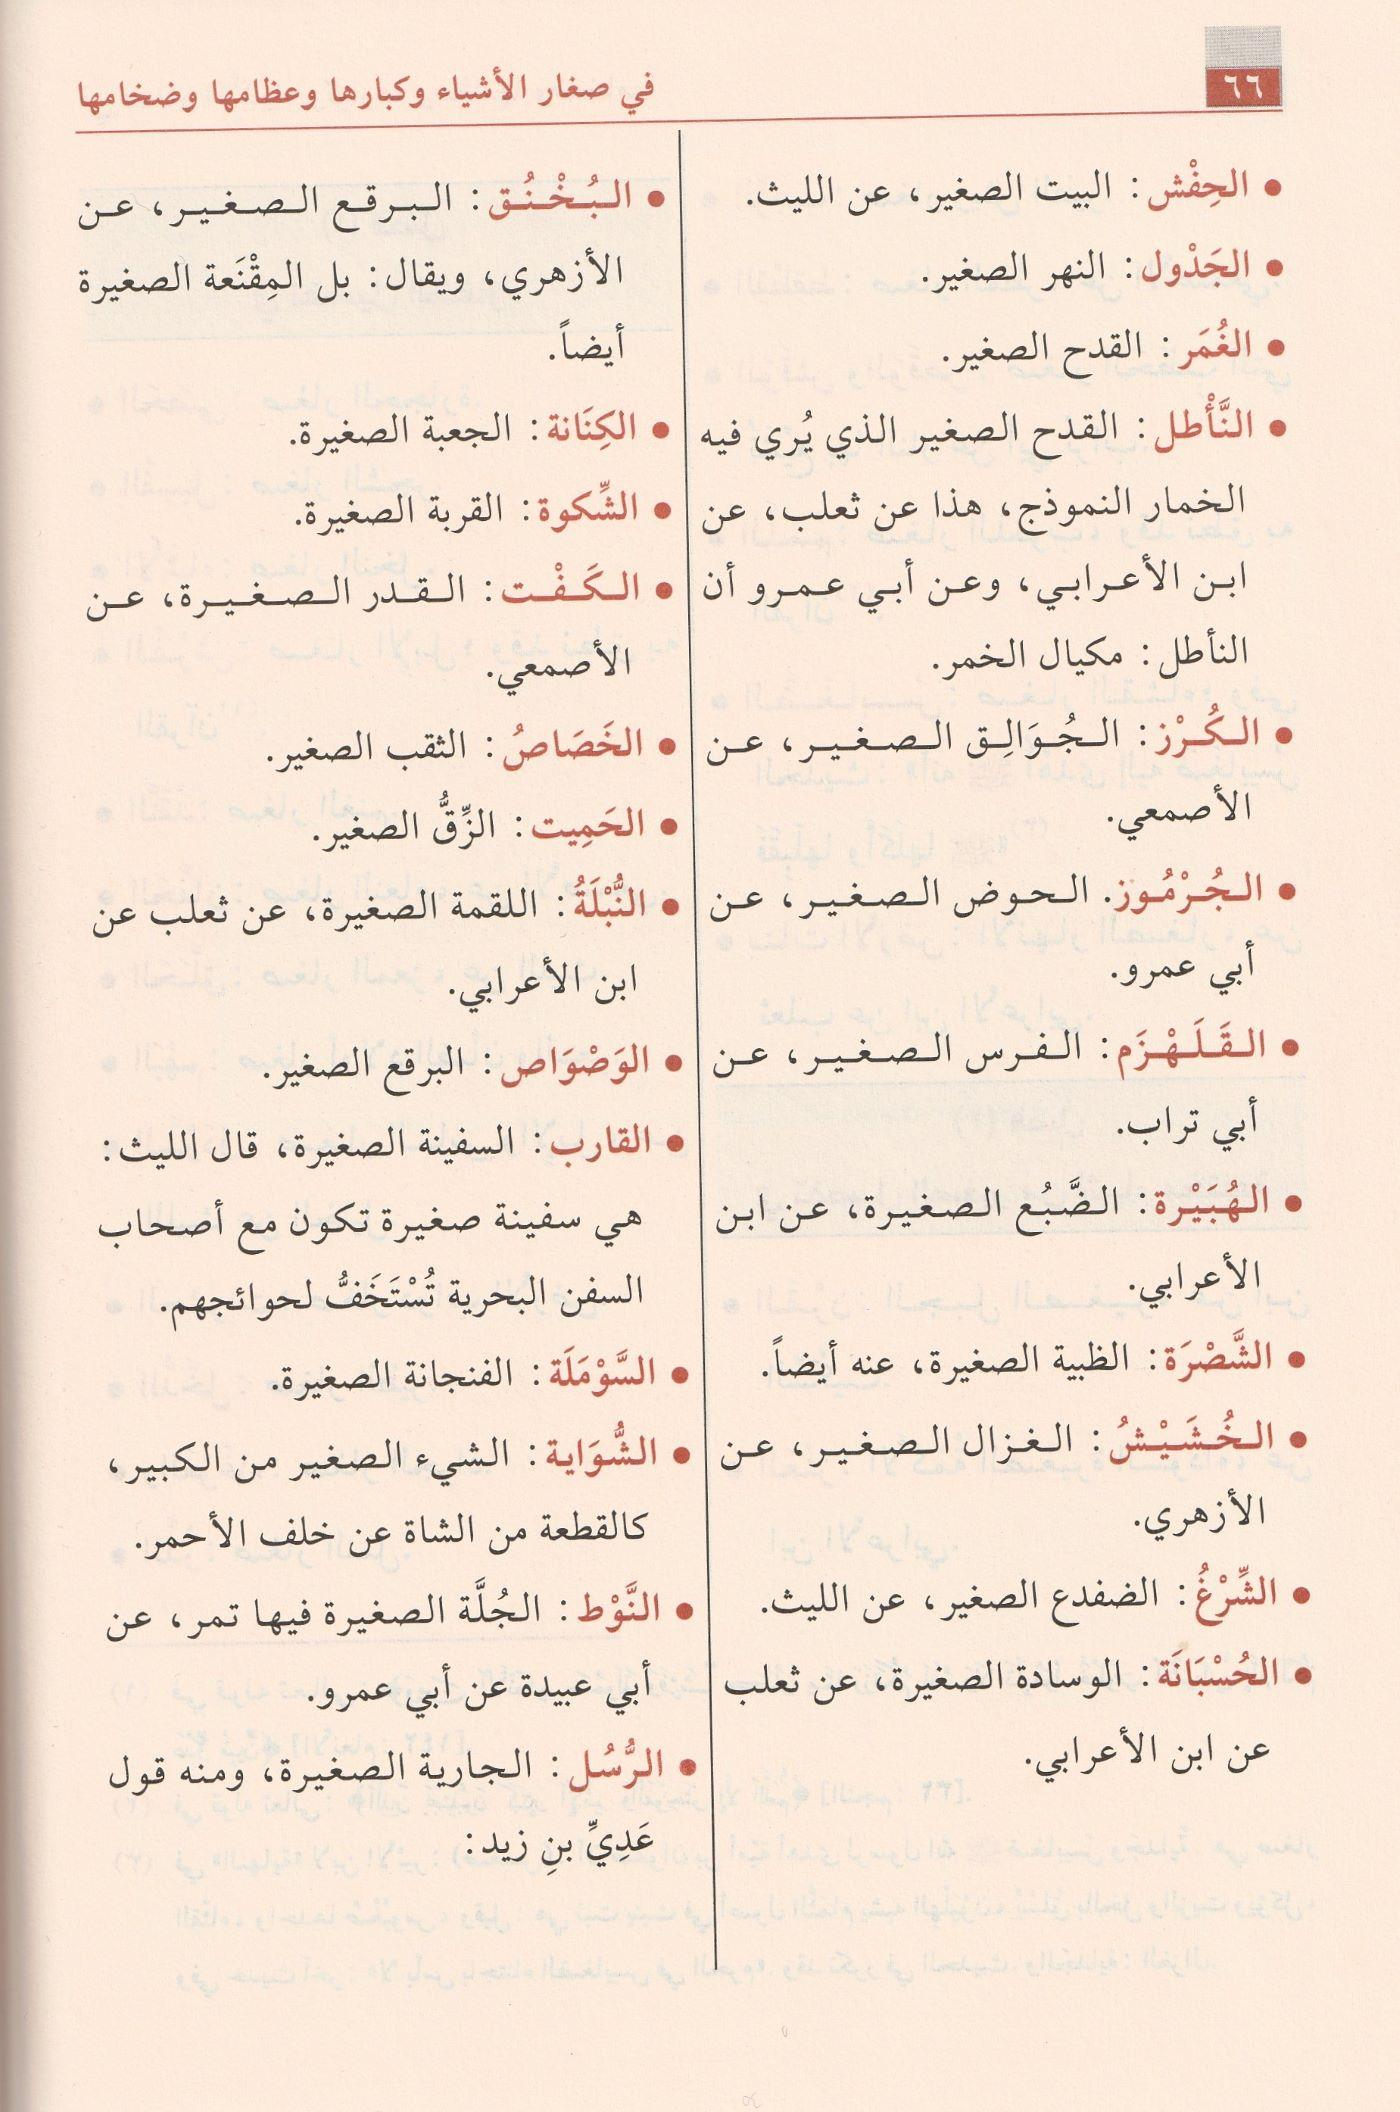 ٦٦
في صغار الأشياء وكبارها وعظامها وضخامها
• الحِفْش: البيت الصغير، عن الليث.
• الجَدْول: النهر الصغير.
• الغُمَر: القدح الصغير.
• النَّأْطل: القدح الصغير الذي يُري فيه
الخمار النموذج، هذا عن ثعلب، عن
ابن الأعرابي، وعن أبي عمرو أن
النأطل: مكيال الخمر.
• الكُرْز: الجُوَالِق الصغير، عن
الأصمعي.
• الجُرْمُوز. الحوض الصغير، عن
أبي عمرو.
• القَلَهْزَم: الفرس الصغير، عن
أبي تراب.
• الهُبَيْرة: الضَّبُع الصغيرة، عن ابن
الأعرابي.
• الشَّصْرَة: الظبية الصغيرة، عنه أيضاً.
• الخُشَيْشُ: الغزال الصغير، عن
الأزهري.
• الشِّرْغُ: الضفدع الصغير، عن الليث.
• الحُسْبَانَة: الوسادة الصغيرة، عن ثعلب
عن ابن الأعرابي.
• البُخْنُق: البرقع الصغير، عن
الأزهري، ويقال: بل المِقْنَعة الصغيرة
أيضاً.
• الكِنَانة: الجعبة الصغيرة.
• الشِّكوة: القربة الصغيرة.
• الكَفْت: القدر الصغيرة، عن
الأصمعي.
• الخَصَاصُ: الثقب الصغير.
• الحَمِيت: الزِّقُّ الصغير.
• النُّبْلَةُ: اللقمة الصغيرة، عن ثعلب عن
ابن الأعرابي.
• الوَصْوَاص: البرقع الصغير.
• القارب: السفينة الصغيرة، قال الليث:
هي سفينة صغيرة تكون مع أصحاب
السفن البحرية تُسْتَخَفُّ لحوائجهم.
• السَّوْمَلَة: الفنجانة الصغيرة.
• الشُّوَاية: الشيء الصغير من الكبير،
كالقطعة من الشاة عن خلف الأحمر.
• النَّوْط: الجُلَّة الصغيرة فيها تمر، عن
أبي عبيدة عن أبي عمرو.
• الرُّسُل: الجارية الصغيرة، ومنه قول
عَدِيِّ بنِ زيد: